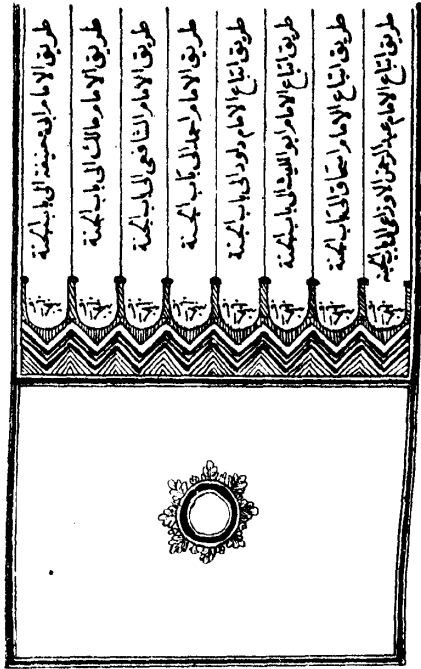 طريق الامام ابى حنيفة الى باب الجنة
طريق الامام مالك الى باب الجنة
طريق الامام الشافعى الى باب الجنة
طريق الامام احمد الى باب الجنة
طريق اتباع الامام داود الى باب الجنة
طريق اتباع الامام ابو الليث الى باب الجنة
طريق اتباع الامام اسحاق الى باب الجنة
طريق اتباع الامام عبد الرحمن الاوزاعى الى باب الجنة